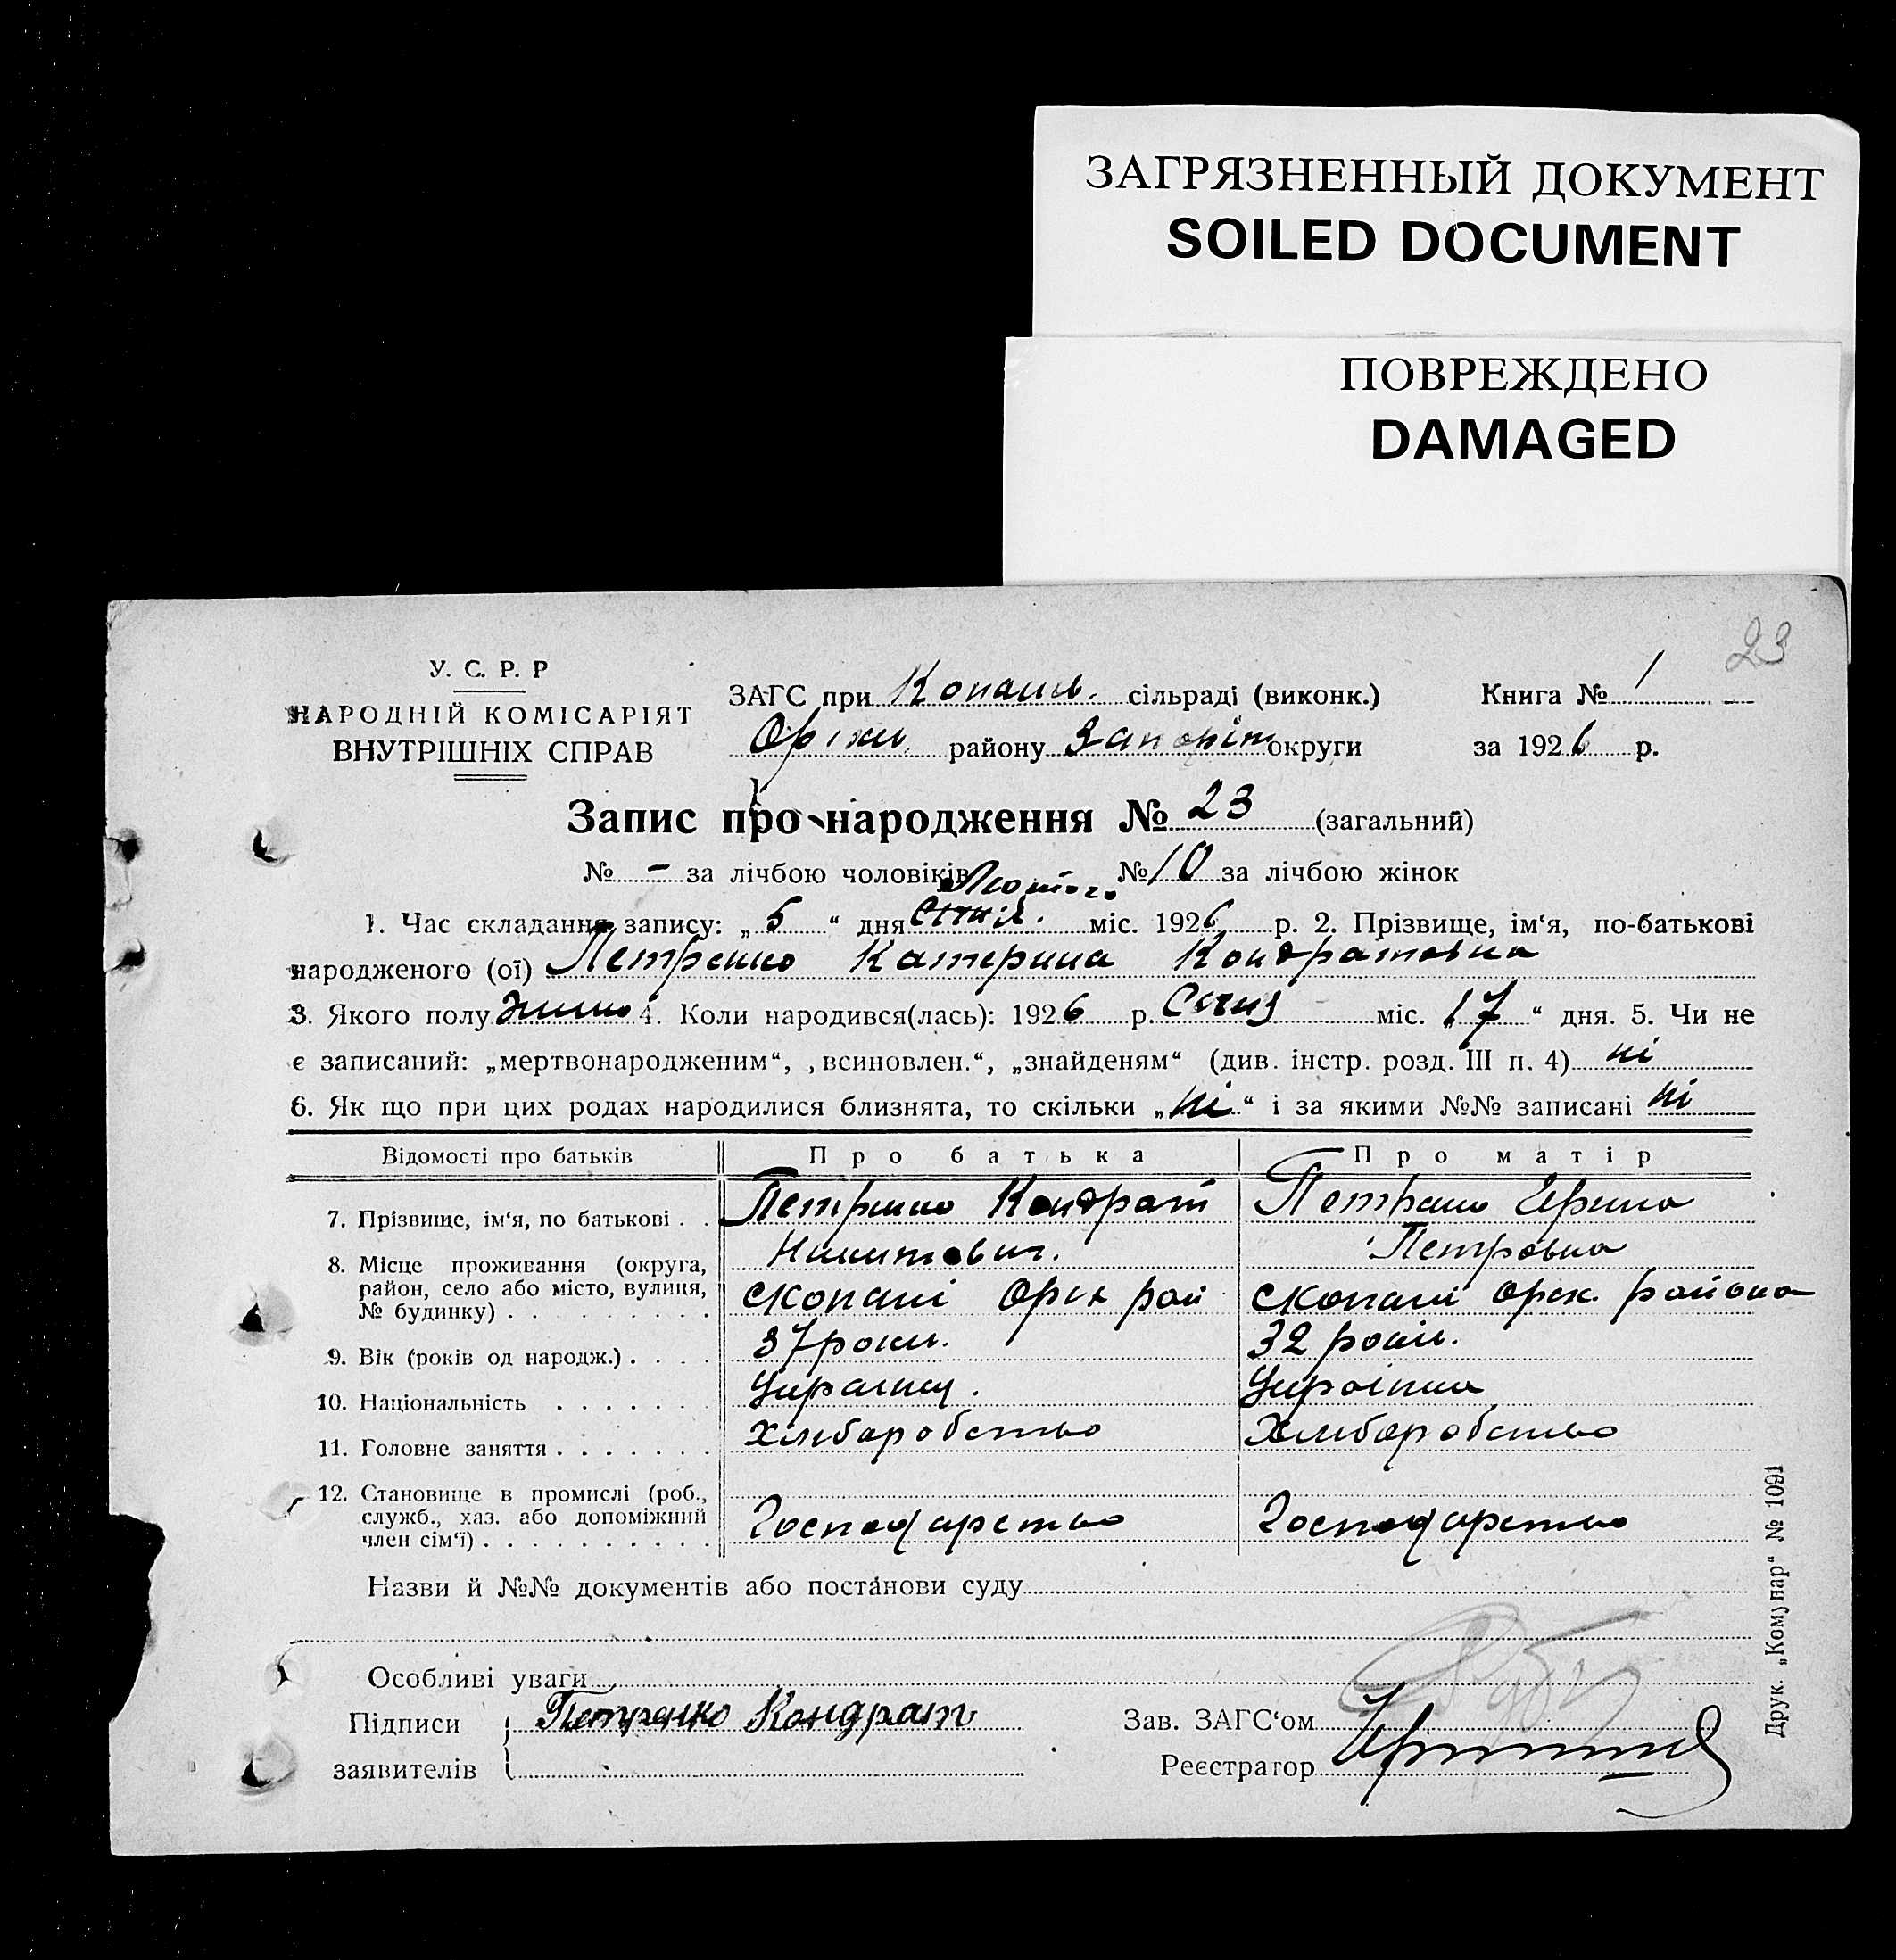 ЗАГРЯЗНЕННЫЙ ДОКУМЕНТ
SOILED DOCUMENT
ПОВРЕЖДЕНО
DAMAGED
23
У. С. Р. Р
НАРОДНІЙ КОМІСАРІЯТ
ВНУТРІШНІХ СПРАВ
ЗАГС при Копанів. сільраді (виконк.) Книга № 1
Оріхів району Запоріт округи за 1926 р.
Запис про народження № 23 (загальний)
№ - за лічбою чоловіків № 10 за лічбою жінок
Лютого
1. Час складання запису: „5“ дня Січня. міс. 1926 р. 2. Прізвище, ім‘я, по-батькові
народженого (ої) Петренко Катерина Кондратовна
3. Якого полу жіно 4. Коли народився(лась): 1926 р. Січня міс. „17“ дня. 5. Чи не
є записаний: „мертвонародженим“, „всиновлен.“, „знайденям“ (див. інстр. розд. III п. 4) ні
6. Як що при цих родах народилися близнята, то скільки „ні“ і за якими №№ записані ні
Відомості про батьків Про батька Про матір
7. Прізвище, ім‘я, по батькові . . Петренко Кондрат Никитович. Петренко Ирина Петровна
8. Місце проживання (округа,
район, село або місто, вулиця,
№ будинку) . . . . . . . . . с Копані Оріх рай с Копані Оріх. района
9. Вік (років од народж.) . . . . 37 роки. 32 роки.
10. Національність . . . . . . . Українц. Українка
11. Головне заняття . . . . . . . Хлібаробство Хлібаробство
12. Становище в промислі (роб.,
служб., хаз. або допоміжний
член сім‘ї) . . . . . . . . . . Господарство Господарство
Назви й №№ документів або постанови суду
Особливі уваги
Підписи Петренко Кондрат Зав. ЗАГС‘ом
заявителів Реєстратор
Друк. „Комунар“ № 1091